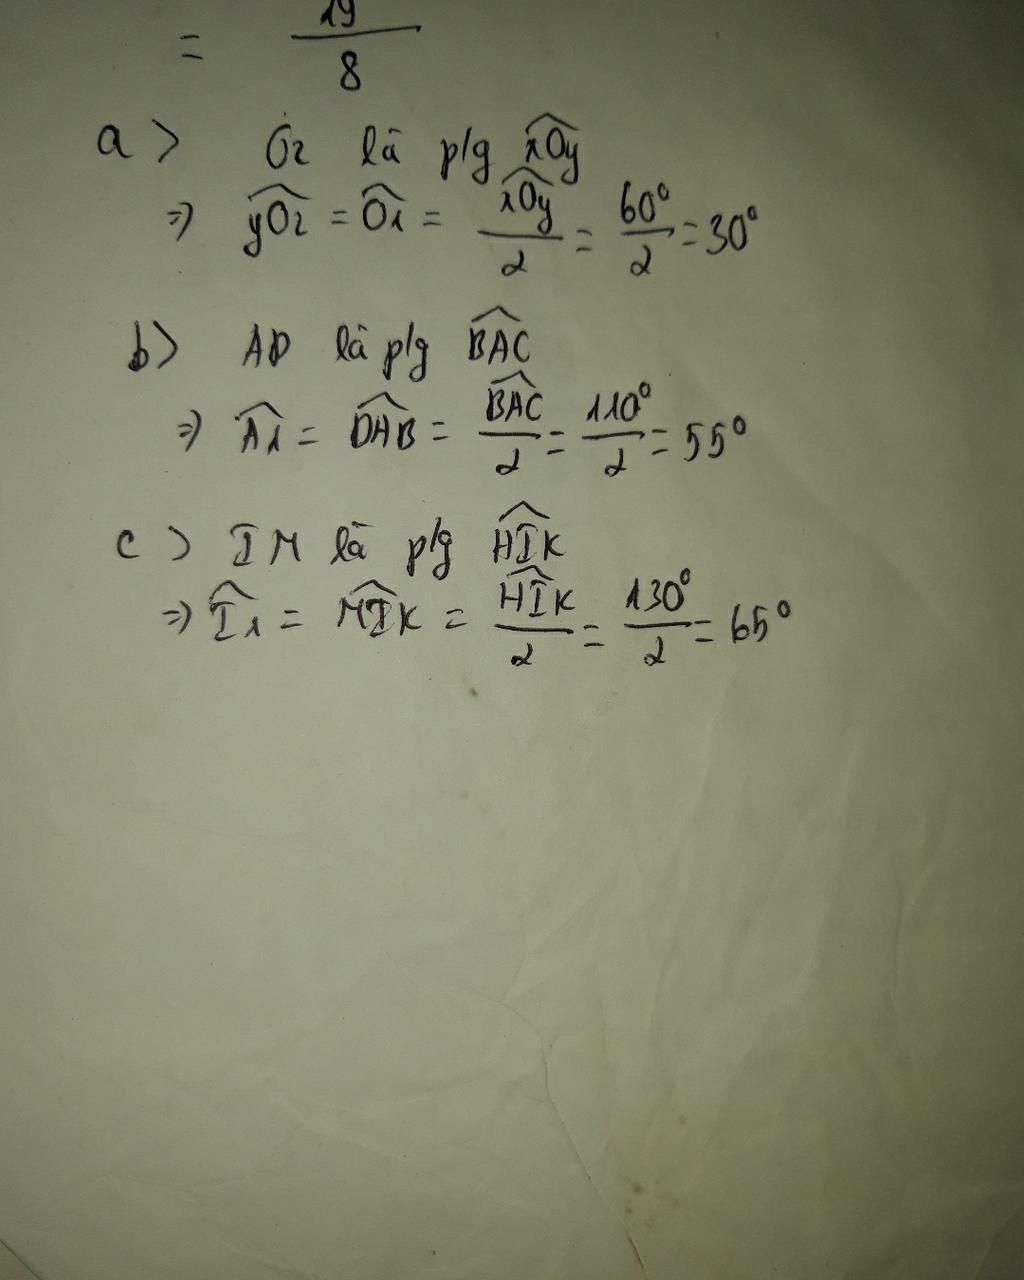 = 19/8
a> Oz là p/g xOy
=> yOz = O1 = xOy/2 = 60°/2 = 30°
b> AD là p/g BAC
=> A1 = DAB = BAC/2 = 110°/2 = 55°
c> IM là p/g HIK
=> I1 = MIK = HIK/2 = 130°/2 = 65°